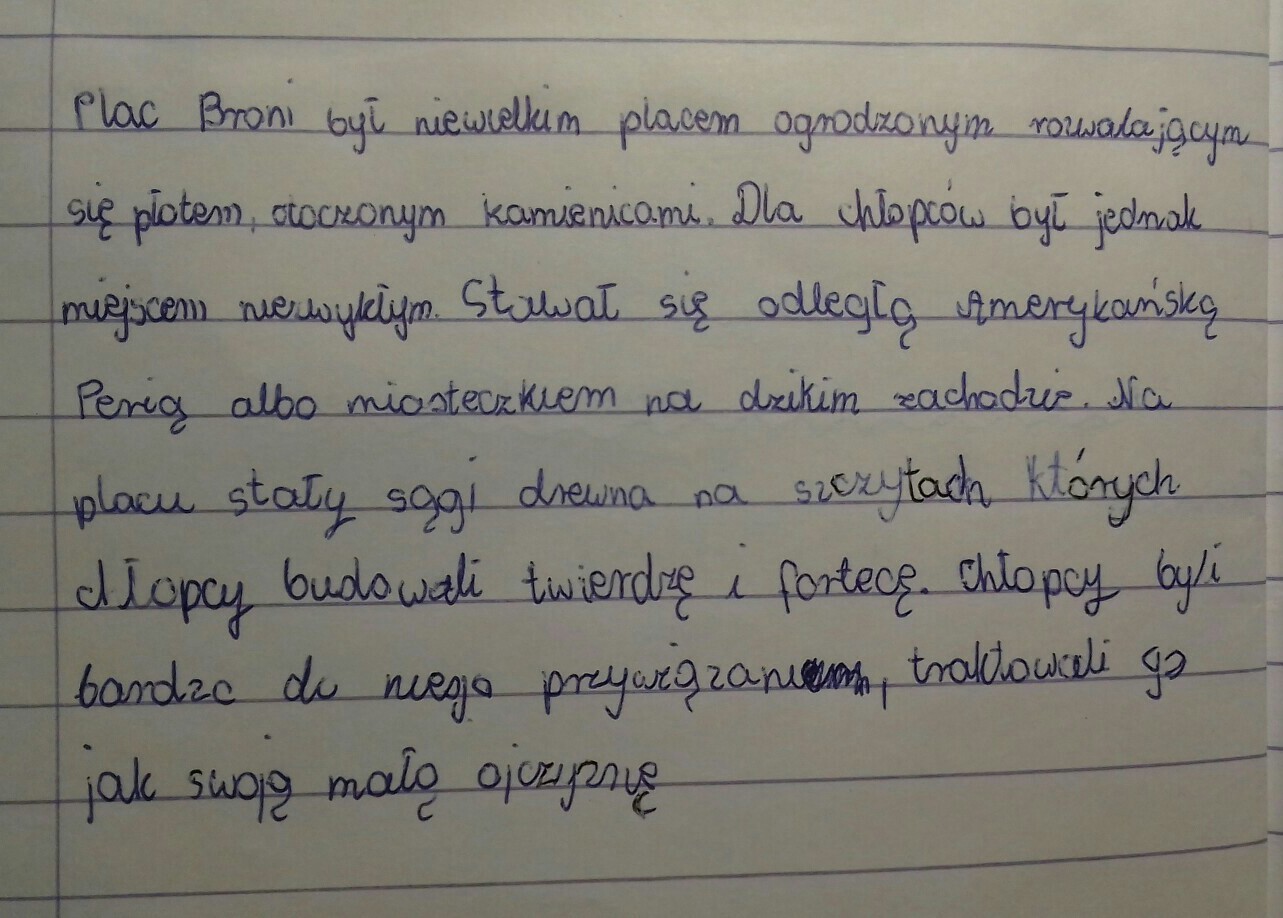 Plac Broni był niewielkim placem ogrodzonym rozwalającym
się płotem, otoczonym kamienicami. Dla chłopców był jednak
miejscem niezwykłym. Stawał się odległą Amerykańską
Perią albo miasteczkiem na dzikim zachodzie. Na
placu stały sągi drewna na szczytach których
chłopcy budowali twierdzę i fortecę. Chłopcy byli
bardzo do niego przywiązani, traktowali go
jak swoją małą ojczyznę